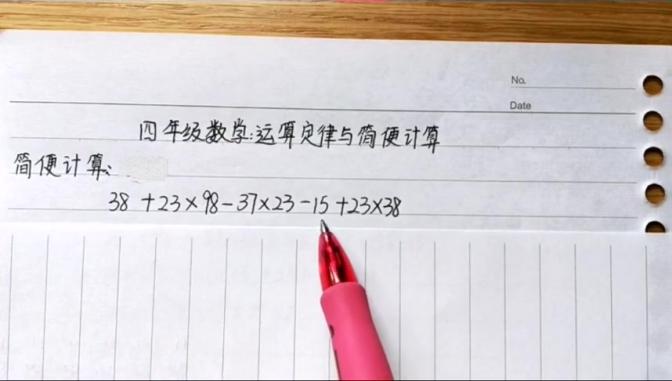 No.
Date
四年级数学:运算定律与简便计算
简便计算:
38 +23×98-37×23-15+23×38